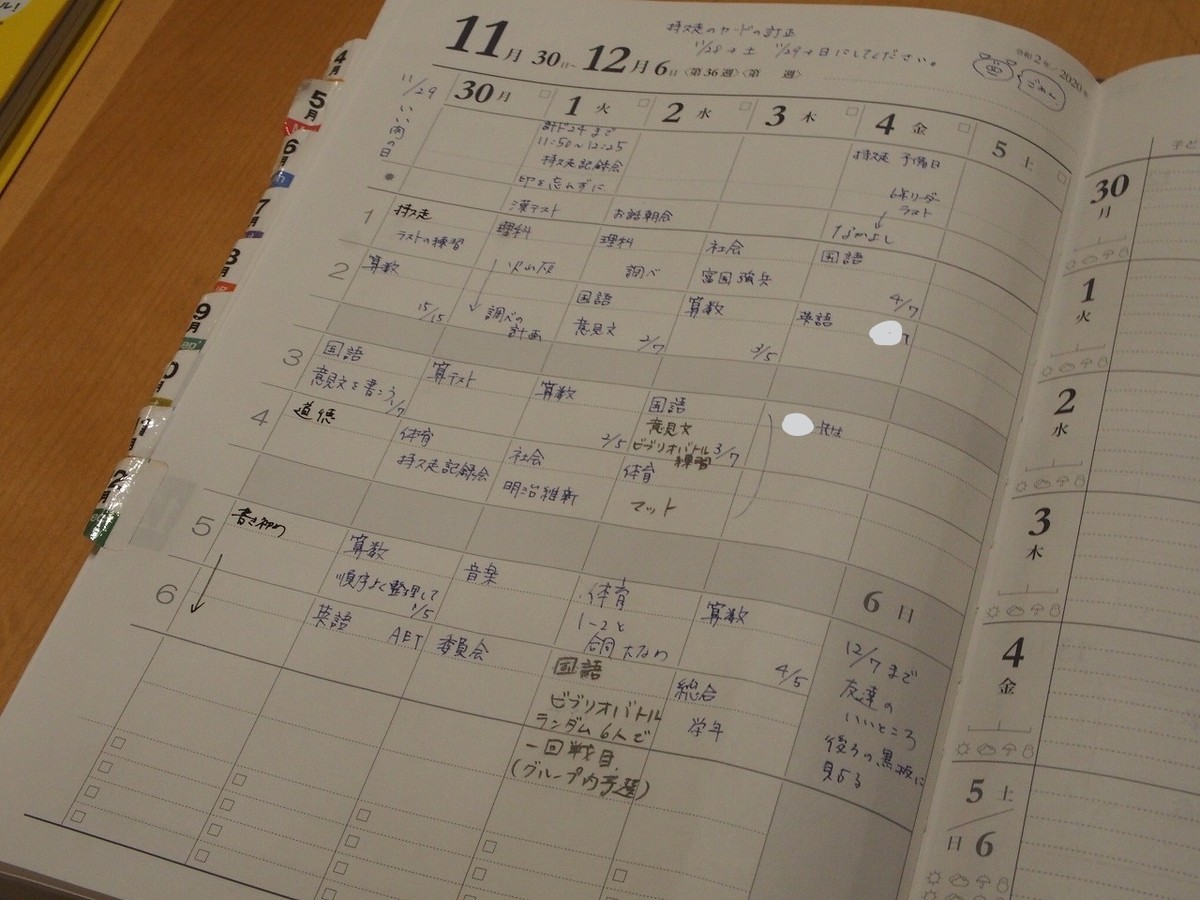 ル!
持久走のカードの訂正
11/28→土 11/29→日にしてください。
11月30日~12月6日〈第36週〉〈第 週〉
令和2年/2020年
ごめん
4月
5月
6月
7月
8月
9月
11/29
いい肉の日
30月
1火
2水
3木
4金
5土
計ド24まで
11:50~12:25
持久走記録会
印を忘れずに
持久走 予備日
6年リーダー
ラスト
漢テスト
お話朝会
なかよし
1
持久走
ラストの練習
理科
火山灰
理科
調べ
社会
富国強兵
国語
4/7
2
算数
15/15
調べの
計画
国語
意見文
2/7
算数
3/5
英語
3
国語
意見文を書こう 1/7
算テスト
算数
2/5
国語
意見文
ビブリオバトル 3/7
練習
4
道徳
体育
持久走記録会
社会
明治維新
体育
マット
5
書き初め
算数
順序よく整理して
1/5
音楽
体育
1-2と
合同 大なわ
算数
4/5
6
英語 AET
委員会
国語
ビブリオバトル
ランダム6人で
一回戦目
(グループ内予選)
総合
学年
6日
12/7まで
友達の
いいところ
後ろの黒板に
30
月
1
火
2
水
3
木
4
金
5土
日6